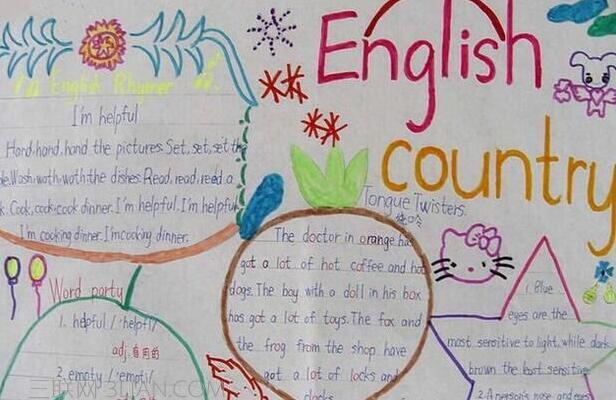 English
country
English Rhymer
I'm helpful
Hand, hand, hand the pictures. Set, set, set the
Wash, wath, wath the dishes. Read, read, read a
Cook, cook, cook dinner. I'm helpful. I'm helpful
I'm cooking dinner. I'm cooking dinner.
Tongue Twisters.
The doctor in orange has
got a lot of hot coffee and hot
dogs. The boy with a doll in his box
has got a lot of toys. The fox and
the frog from the shop have
got a lot of locks and
clocks
Word party
1. helpful /'helpfl/
adj. 有用的
2. empty /'empti/
1. Blue
eyes are the
most sensitive to light, while dark
brown the least sensitive
2. A person's nose and ears
三联网 3LIAN.COM